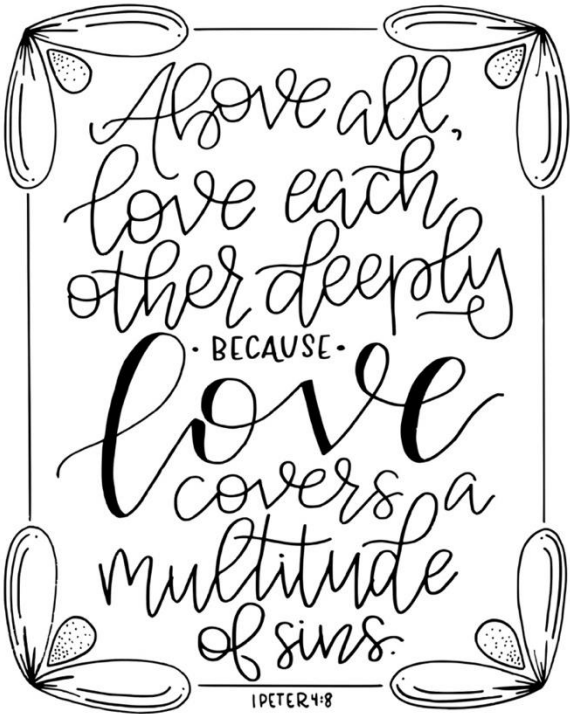 Above all,
love each
other deeply
· BECAUSE ·
love
covers a
multitude
of sins.
1 PETER 4:8